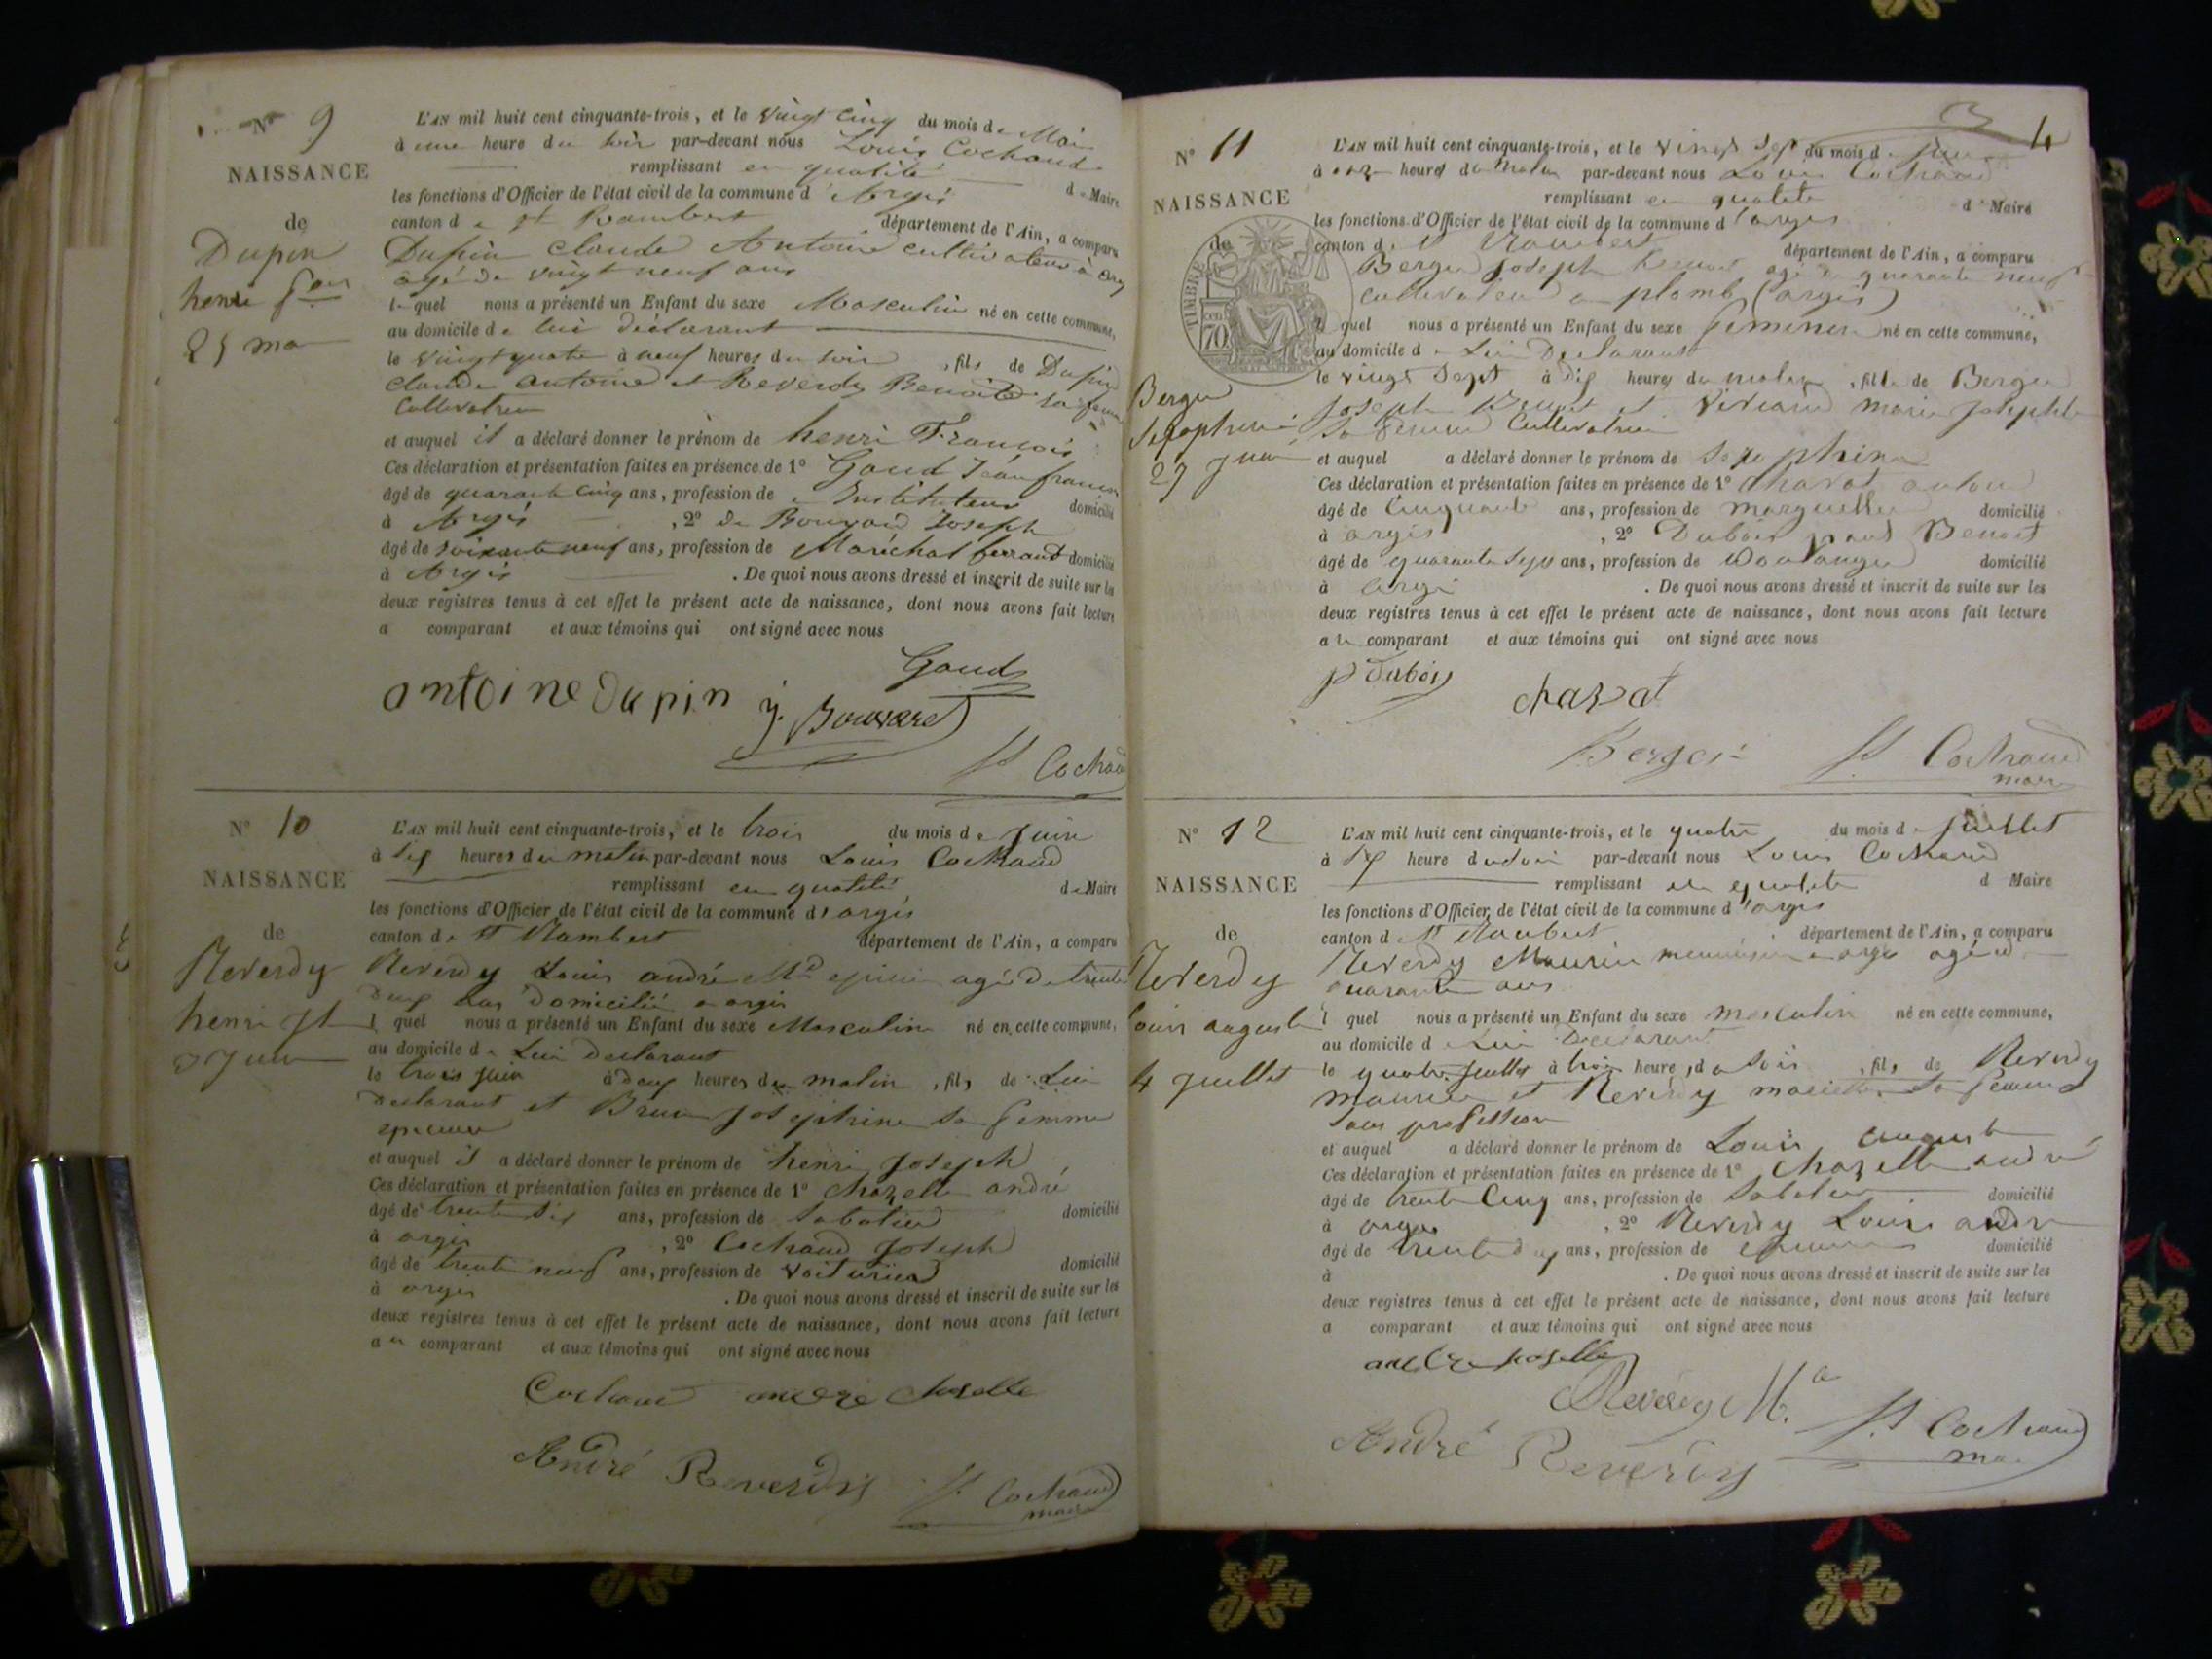 N° 9
NAISSANCE
de
Dupin
henri fçois
25 mai
L'AN mil huit cent cinquante-trois, et le vingt cinq du mois de Mai
à une heure du soir par-devant nous Louis Cochaud
remplissant en qualité de Maire
les fonctions d'Officier de l'état civil de la commune d'Argis
canton de St Rambert département de l'Ain, a comparu
Dupin claude Antoine cultivateur à
agé de vingt neuf ans
lequel nous a présenté un Enfant du sexe Masculin né en cette commune,
au domicile de lui déclarant
le vingt quatre à neuf heures du soir, fils de Dupin
claude antoine et Reverdy Benoite sa femme
et auquel il a déclaré donner le prénom de henri François
Ces déclaration et présentation faites en présence de 1° Goud Jean françois
âgé de quarante cinq ans, profession de Instituteur domicilié
à Argis, 2° de Bouvard Joseph
âgé de soixante neuf ans, profession de Maréchal ferrant domicilié
à Argis. De quoi nous avons dressé et inscrit de suite sur les
deux registres tenus à cet effet le présent acte de naissance, dont nous avons fait lecture
a comparant et aux témoins qui ont signé avec nous
Goud
antoine dupin j. Bouvard
Cochaud
N° 10
NAISSANCE
de
Reverdy
henri Jh
3 Juin
L'AN mil huit cent cinquante-trois, et le trois du mois de Juin
à dix heures du matin par-devant nous Louis Cochaud
remplissant en qualité de Maire
les fonctions d'Officier de l'état civil de la commune d'argis
canton de St Rambert département de l'Ain, a comparu
Reverdy Louis andré Md epicier agé de trente
deux ans domicilié a argis
lquel nous a présenté un Enfant du sexe Masculin né en cette commune,
au domicile de Lui declarant
le trois juin à deux heures du matin, fils de Lui
declarant et Brun Josephine sa femme
et auquel il a déclaré donner le prénom de henri Joseph
Ces déclaration et présentation faites en présence de 1° chazelle andré
âgé de trente six ans, profession de sabotier domicilié
à argis, 2° Cochaud Joseph
âgé de trente neuf ans, profession de voiturier domicilié
à argis. De quoi nous avons dressé et inscrit de suite sur les
deux registres tenus à cet effet le présent acte de naissance, dont nous avons fait lecture
au comparant et aux témoins qui ont signé avec nous
Cochaud andre chaselle
André Reverdy Cochaud
maire
4
N° 11
NAISSANCE
de
TIMBRE
70
Berger
27 Juin
L'AN mil huit cent cinquante-trois, et le vingt sept du mois de juin
à onze heures du matin par-devant nous Louis Cochaud
remplissant en qualité d Maire
les fonctions d'Officier de l'état civil de la commune d'argis
canton de St Rambert département de l'Ain, a comparu
Berger Joseph Benoit agé de quarante neuf
cultivateur a plomb (argis)
lquel nous a présenté un Enfant du sexe feminin né en cette commune,
au domicile de Lui Declarant
le vingt sept à dix heures du matin, fille de Berger
Joseph Benoit et marie Josephte
sa femme Cultivatrice
et auquel a déclaré donner le prénom de
Ces déclaration et présentation faites en présence de 1° antoine
âgé de cinquante ans, profession de domicilié
à argis, 2° Dubois paul Benoit
âgé de quarante sept ans, profession de Boulanger domicilié
à argis. De quoi nous avons dressé et inscrit de suite sur les
deux registres tenus à cet effet le présent acte de naissance, dont nous avons fait lecture
a comparant et aux témoins qui ont signé avec nous
p Dubois
Berger Cochaud
maire
N° 12
NAISSANCE
de
Reverdy
Louis auguste
4 Juillet
L'AN mil huit cent cinquante-trois, et le quatre du mois d Juillet
à heure du soir par-devant nous Louis Cochaud
remplissant en qualité d Maire
les fonctions d'Officier de l'état civil de la commune d'argis
canton d St Rambert département de l'Ain, a comparu
Reverdy Maurice menuisier a argis agé de
quarante ans
lquel nous a présenté un Enfant du sexe masculin né en cette commune,
au domicile de Lui Declarant
le quatre Juillet à trois heures du soir, fils de Reverdy
maurice et Reverdy mariette sa femme
sans profession
et auquel a déclaré donner le prénom de Louis auguste
Ces déclaration et présentation faites en présence de 1° chazelle andré
âgé de trente cinq ans, profession de sabotier domicilié
à argis, 2° Reverdy Louis andré
âgé de trente deux ans, profession de domicilié
à . De quoi nous avons dressé et inscrit de suite sur les
deux registres tenus à cet effet le présent acte de naissance, dont nous avons fait lecture
a comparant et aux témoins qui ont signé avec nous
andre chaselle
Reverdy M.
André Reverdy Cochaud